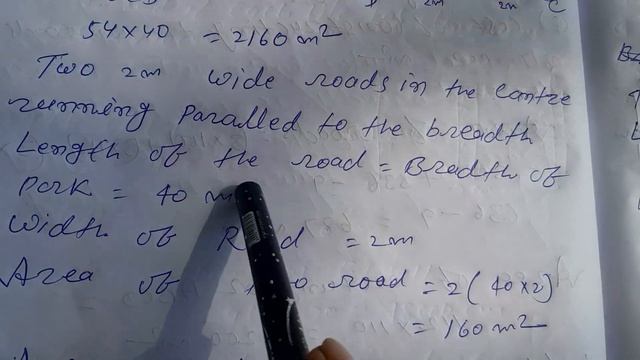 2m 2m C
54×40 = 2160m²
Two 2m wide roads in the centre
running Paralled to the breadth
Length of the road = Bredth of
Park = 40 m
Width of = 2m
Area of road = 2(40×2)
= 160m²